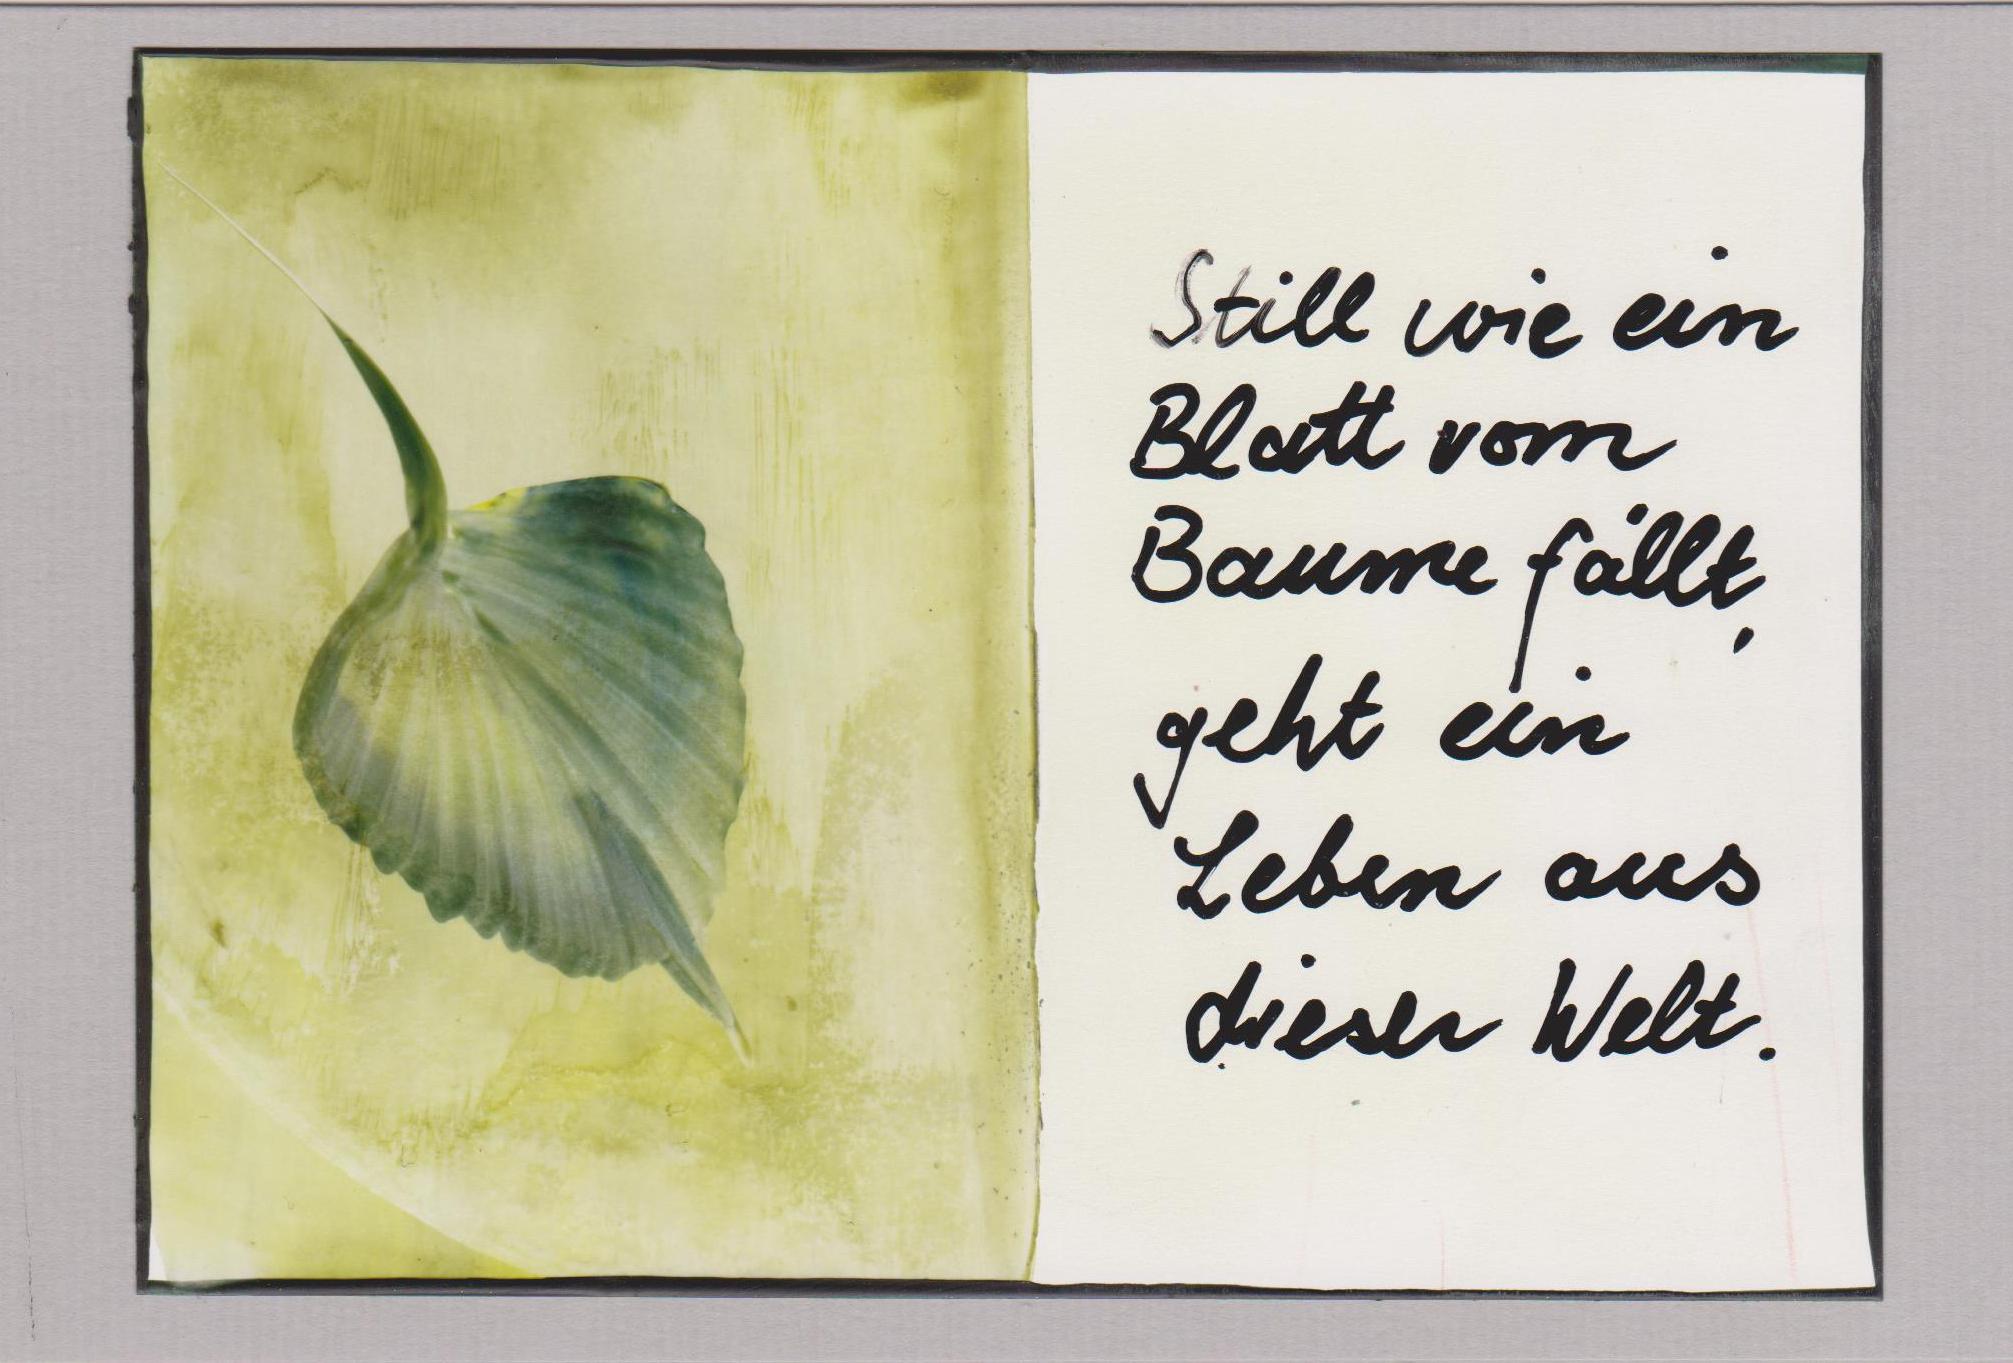 Still wie ein
Blatt vom
Baume fällt,
geht ein
Leben aus
dieser Welt.